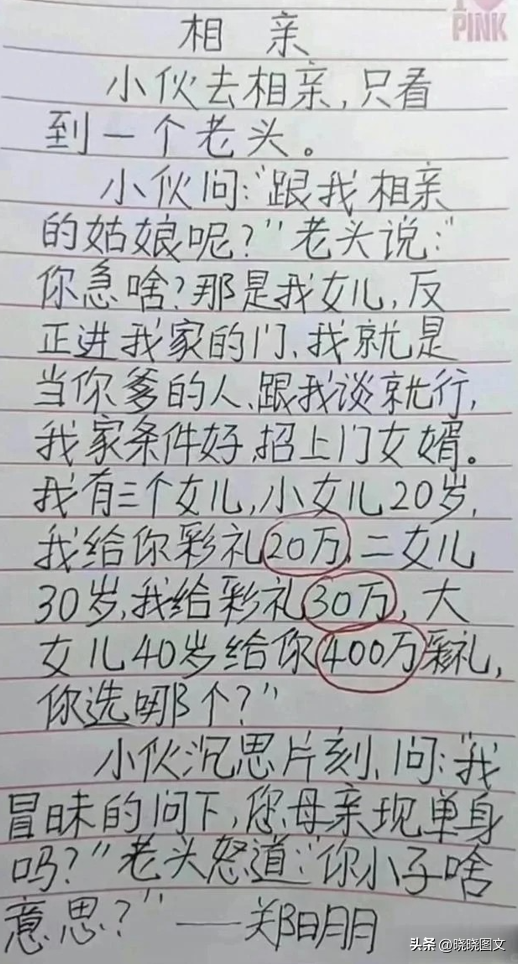 PINK
相亲
小伙去相亲,只看
到一个老头。
小伙问:“跟我相亲
的姑娘呢?”老头说:“
你急啥?那是我女儿,反
正进我家的门、我就是
当你爹的人、跟我谈就行,
我家条件好,招上门女婿。
我有三个女儿,小女儿20岁,
我给你彩礼20万,二女儿
30岁,我给彩礼30万,大
女儿40岁给你400万彩礼,
你选哪个?”
小伙沉思片刻、问:“我
冒昧的问下,您母亲现单身
吗?”老头怒道:“你小子啥
意思?”——郑明月
头条 @晓晓图文